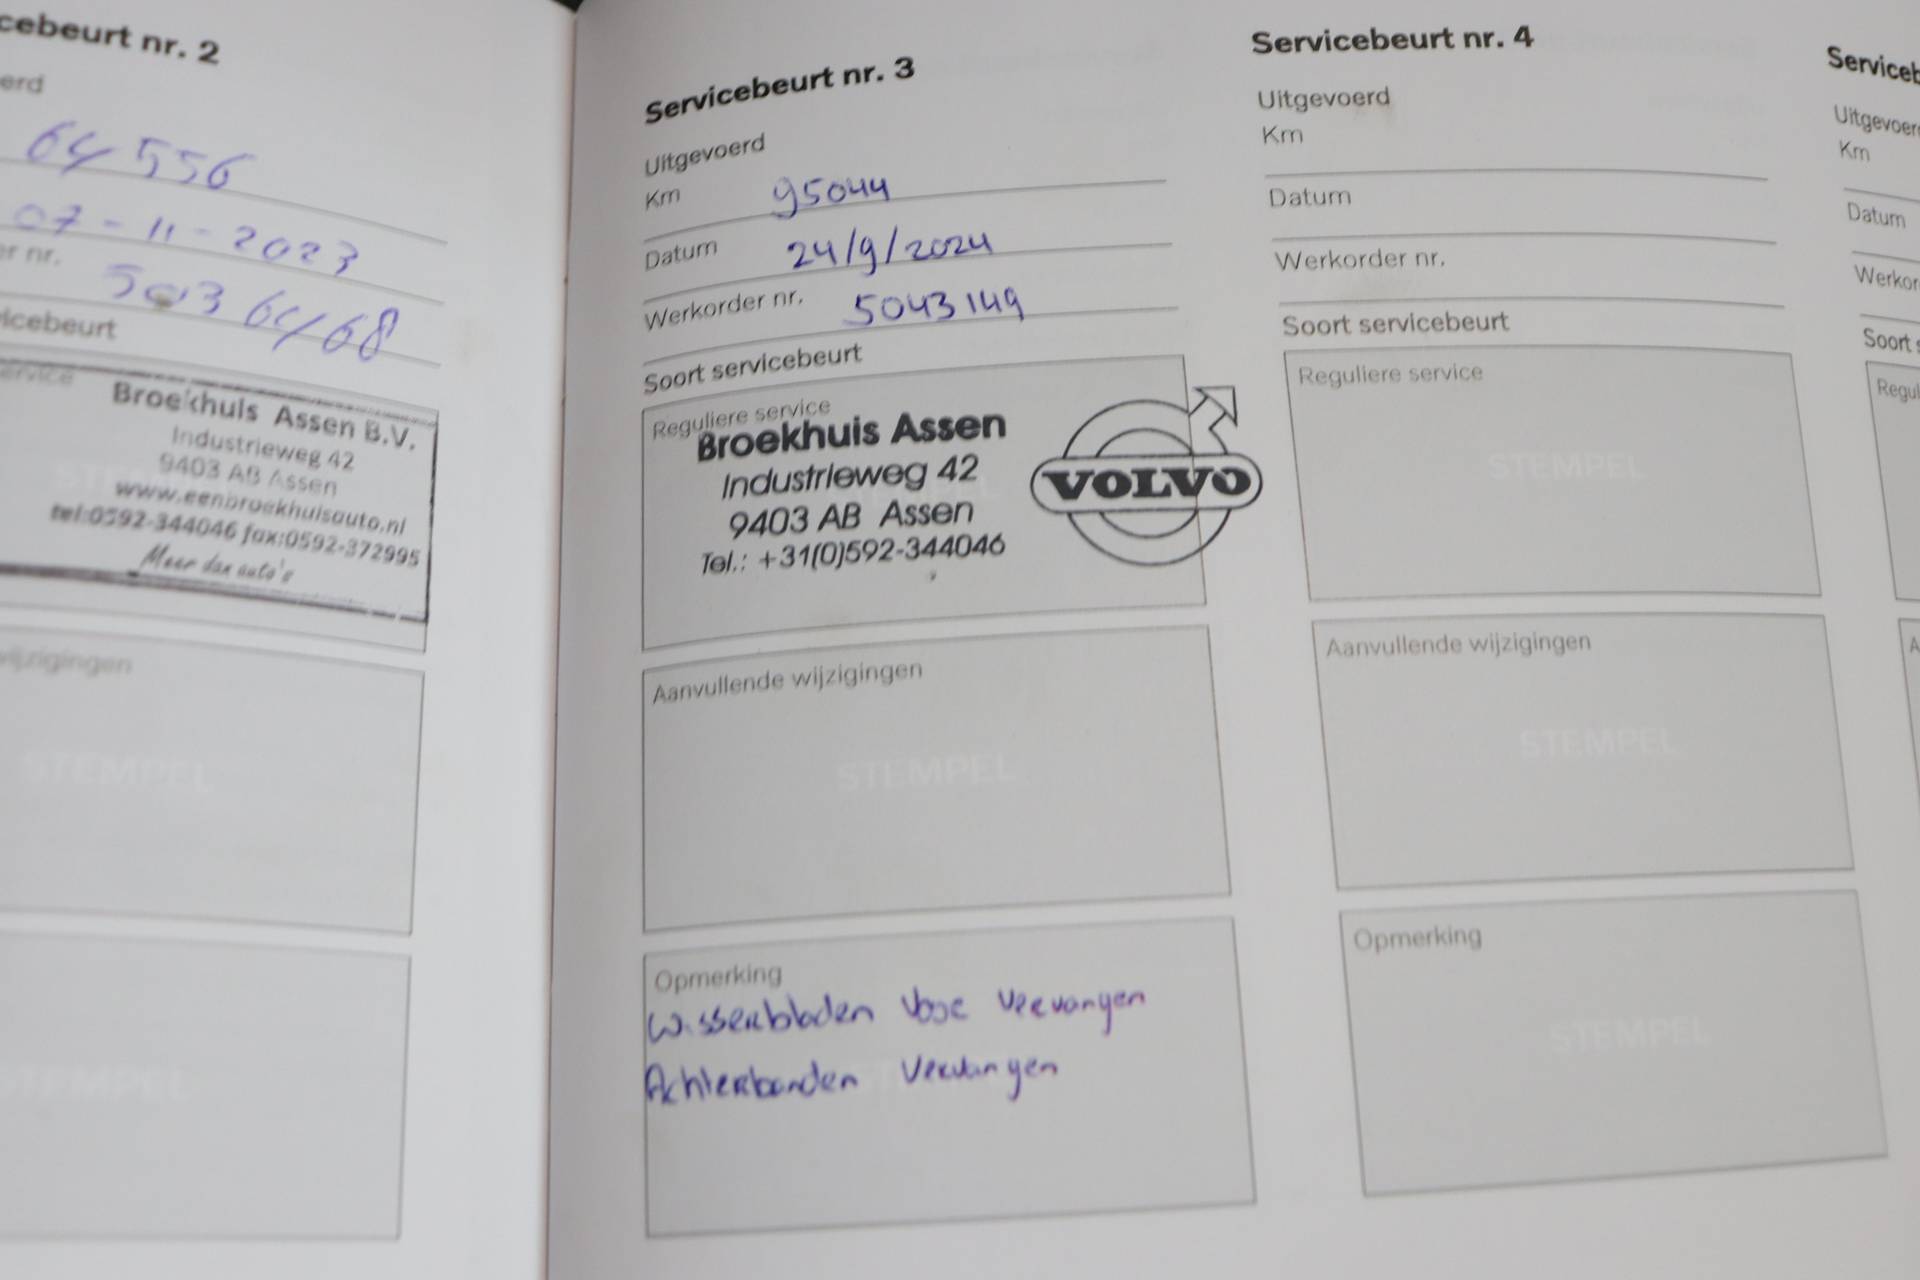 cebeurt nr. 2
erd
64 556
07-11-2023
er nr.
vicebeurt
ervice
Broekhuis Assen B.V.
Industrieweg 42
9403 AB Assen
www.eenbroekhuisauto.nl
tel:0592-344046 fax:0592-372995
Meer dan auto's
wijzigingen
STEMPEL
STEMPEL
Servicebeurt nr. 3
Uitgevoerd
Km 95044
Datum 24/9/2024
Werkorder nr. 5043149
Soort servicebeurt
Reguliere service
Broekhuis Assen
Industrieweg 42
9403 AB Assen
Tel.: +31(0)592-344046
VOLVO
Aanvullende wijzigingen
STEMPEL
Opmerking
Wisserbladen Voor Vervangen
Achterbanden Vervangen
Servicebeurt nr. 4
Uitgevoerd
Km
Datum
Werkorder nr.
Soort servicebeurt
Reguliere service
STEMPEL
Aanvullende wijzigingen
STEMPEL
Opmerking
STEMPEL
Serviceb
Uitgevoer
Km
Datum
Werkor
Soort s
Regul
A